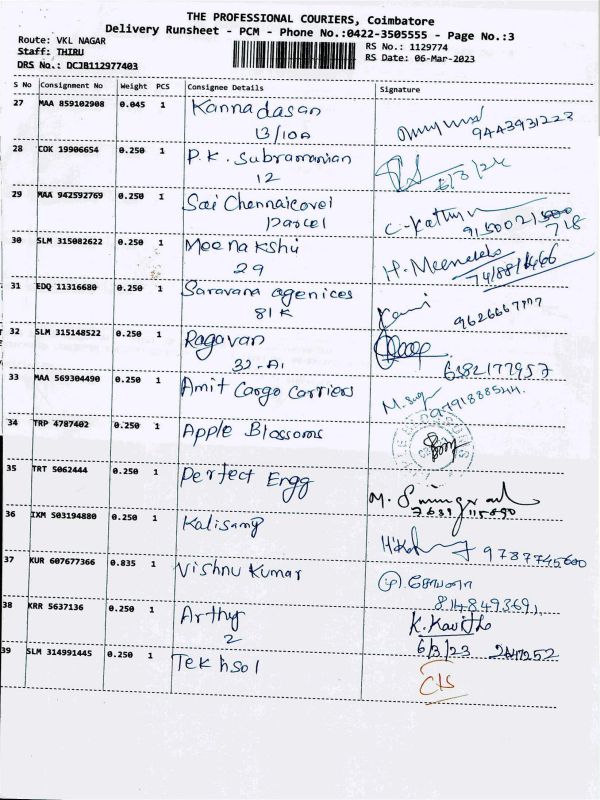 THE PROFESSIONAL COURIERS, Coimbatore
Delivery Runsheet - PCM - Phone No.:0422-3505555 - Page No.:3
Route: VKL NAGAR
Staff: THIRU
DRS No.: DCJB112977403
RS No.: 1129774
RS Date: 06-Mar-2023
S No Consignment No Weight PCS Consignee Details Signature
27 MAA 859102908 0.045 1 Kannadasan
13/10A
9443931223
28 COK 19906654 0.250 1 P.K. Subramanian
12
29 MAA 942592769 0.250 1 Sai Chennaicovel
Parcel
30 SLM 315082622 0.250 1 Meenakshi
29
31 EDQ 11316680 0.250 1 Saravana agenices
81 K
32 SLM 315148522 0.250 1 Ragavan
32-A1
6382177957
33 MAA 569304490 0.250 1 Amit Cargo Carriers
34 TRP 4787402 0.250 1 Apple Blossoms
35 TRT 5062444 0.250 1 Perfect Engg
36 IXM 503194880 0.250 1 Kalisamy
9787745600
37 KUR 607677366 0.835 1 Vishnu Kumar
38 KRR 5637136 0.250 1 Arthy K. Kavitha
2 6/3/23
39 SLM 314991445 0.250 1 Tekhsol